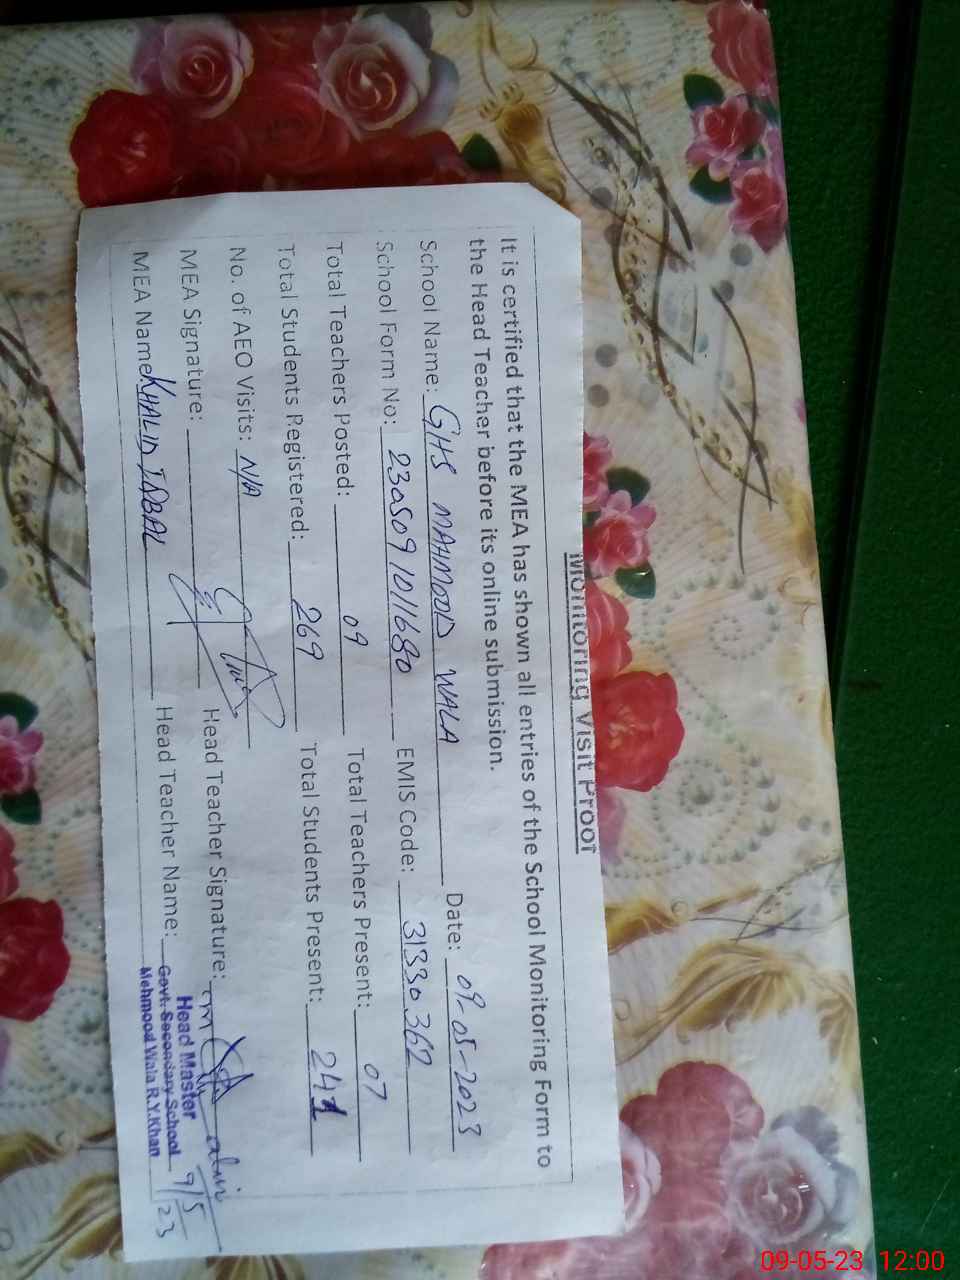 Monitoring Visit Proof
It is certified that the MEA has shown all entries of the School Monitoring Form to
the Head Teacher before its online submission.
School Name: GHS MAHMOOD WALA Date: 09-05-2023
School Form No: 2305091011680 EMIS Code: 31330362
Total Teachers Posted: 09 Total Teachers Present: 07
Total Students Registered: 269 Total Students Present: 241
No. of AEO Visits: N/A
MEA Signature: Head Teacher Signature:
MEA Name: KHALID IQBAL Head Teacher Name:
Head Master
Govt. Secondary School
Mehmood Wala R.Y.Khan
9/5/23
09-05-23 12:00